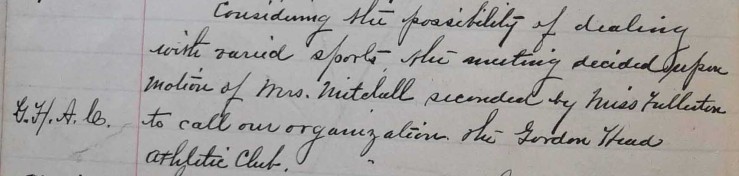 Considering the possibility of dealing
with varied sports, the meeting decided upon
motion of Mrs. Mitchell seconded by Miss Fullerton
G.H.A.C. to call our organization the Gordon Head
Athletic Club.